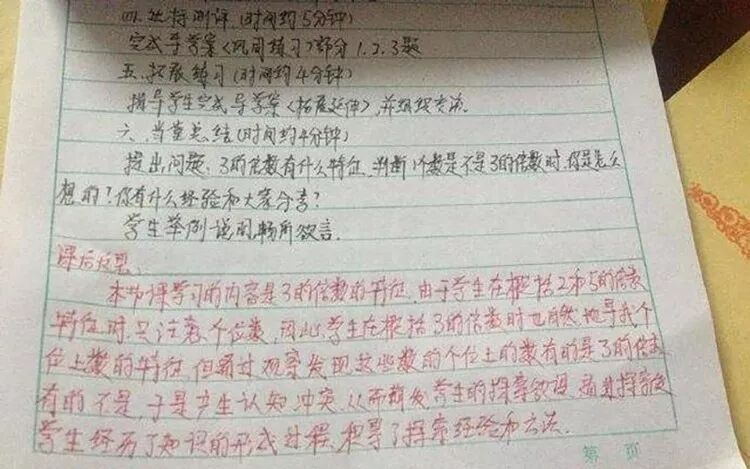 四.达标测评(时间约5分钟)
完成导学案〈巩固练习〉部分1.2.3题
五.拓展练习(时间约4分钟)
指导学生完成导学案〈拓展延伸〉,并组织交流.
六.当堂总结(时间约4分钟)
提出问题:3的倍数有什么特征,判断1个数是不是3的倍数时,你是怎么
想的?你有什么经验和大家分享?
学生举例说明,畅所欲言.
课后反思:
本节课学习的内容是3的倍数的特征,由于学生在概括2和5的倍数
特征时,只注意个位数,因此学生在概括3的倍数时也自然地寻找个
位上数的特征,但通过观察发现这些数的个位上的数有的是3的倍数
有的不是,于是产生认知冲突,从而激发学生的探索欲望,通过探究使
学生经历了知识的形成过程,积累了探索经验和方法.
第 页